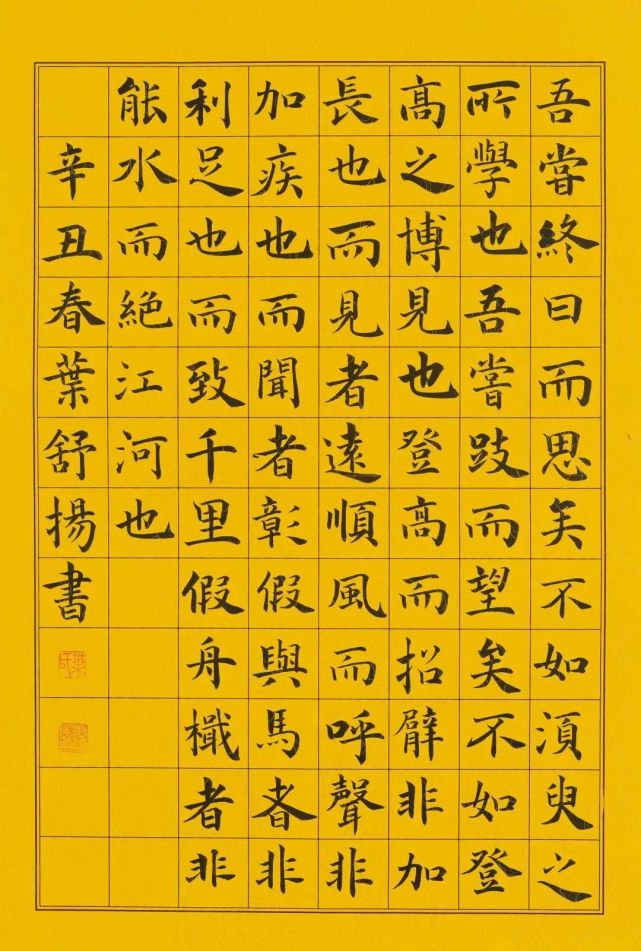 吾嘗終日而思矣不如須臾之
所學也吾嘗跂而望矣不如登
高之博見也登高而招臂非加
長也而見者遠順風而呼聲非
加疾也而聞者彰假輿馬者非
利足也而致千里假舟檝者非
能水而絕江河也
辛丑春葉舒揚書